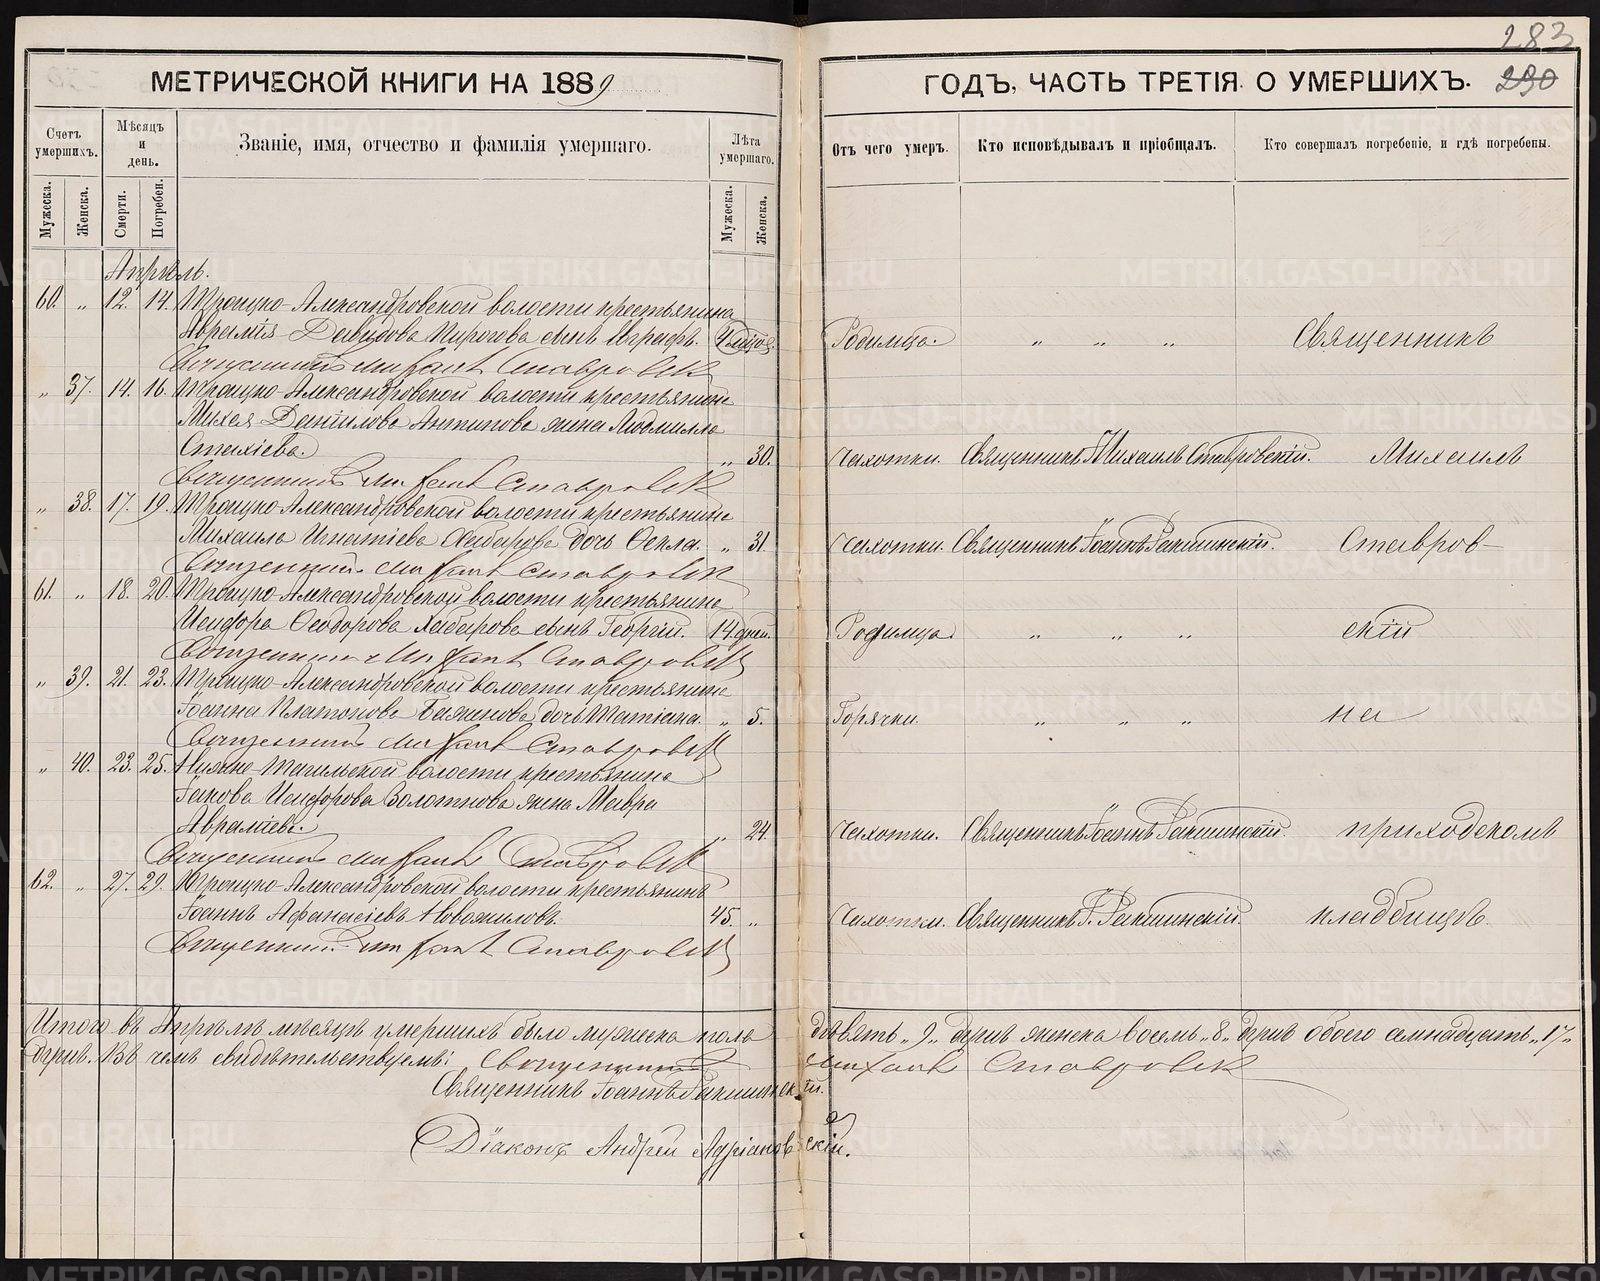 283
290
МЕТРИЧЕСКОЙ КНИГИ НА 1889
ГОДЪ, ЧАСТЬ ТРЕТІЯ. О УМЕРШИХЪ.
Счетъ умершихъ.
Мѣсяцъ и день.
Званіе, имя, отчество и фамилія умершаго.
Лѣта умершаго.
Отъ чего умеръ.
Кто исповѣдывалъ и пріобщалъ.
Кто совершалъ погребеніе, и гдѣ погребены.
Мужеска.
Женска.
Смерти.
Погребен.
Мужеска.
Женска.
Апрѣль.
60. „ 12. 14. Троицко-Александровской волости крестьянина
Аврамія Давидова Пирогова сынъ Евграфъ.
Родимца. „ „ „ Священникъ
Священникъ Михаилъ Ставровск
„ 37. 14. 16. Троицко-Александровской волости крестьянина
Михея Даніилова Антипова жена Людмилла
Стахіева. „ 30. Чахотки. Священникъ Михаилъ Ставровскій. Михаилъ
Священникъ Михаилъ Ставровск
„ 38. 17. 19. Троицко-Александровской волости крестьянина
Михаила Игнатіева Хабарова дочь Ѳекла. „ 31. Чахотки. Священникъ Іоаннъ Ставров-
Священникъ Михаилъ Ставровск
61. „ 18. 20. Троицко-Александровской волости крестьянина
Исидора Ѳеодорова Хабарова сынъ Георгій. 14 дней. Родимца. „ „ „ скій
Священникъ Михаилъ Ставровск
„ 39. 21. 23. Троицко-Александровской волости крестьянина
Іоанна Платонова Баженова дочь Татіана. „ 5. Горячки. „ „ „ на
Священникъ Михаилъ Ставровск
„ 40. 23. 25. Нижне-Тагильской волости крестьянина
Іакова Исидорова Золотнова жена Мавра
Авраміева. „ 24. Чахотки. Священникъ Іоаннъ приходскомъ
Священникъ Михаилъ Ставровск
62. „ 27. 29. Троицко-Александровской волости крестьянинъ
Іоаннъ Афанасіевъ Новожиловъ. 45. „ Чахотки. Священникъ І. кладбищѣ.
Священникъ Михаилъ Ставровск
Итого въ Апрѣлѣ мѣсяцѣ умершихъ было мужеска пола девять „9„ душъ женска восемь „8„ душъ обоего семнадцать „17„
душъ. Въ чемъ свидѣтельствуемъ: Священникъ Михаилъ Ставровск
Священникъ Іоаннъ
Діаконъ Андрей Адріановскій.
METRIKI.GASO-URAL.RU